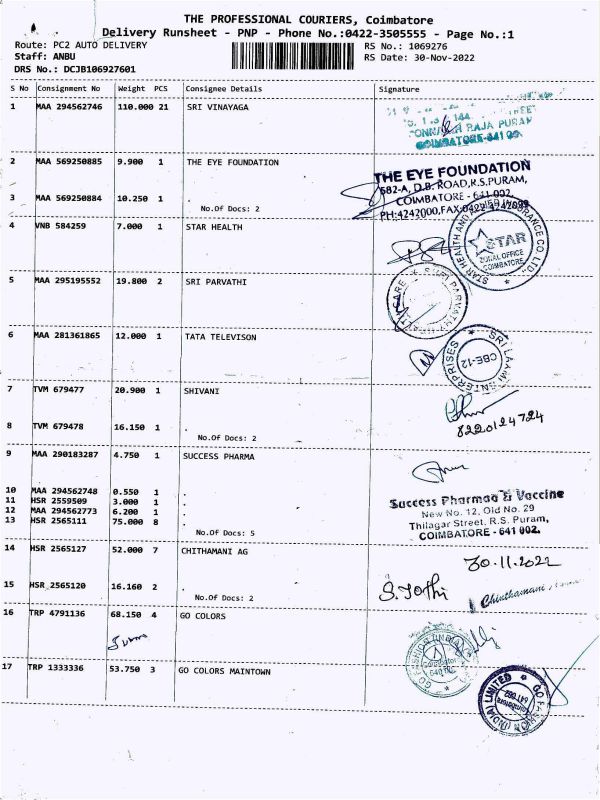 THE PROFESSIONAL COURIERS, Coimbatore
Delivery Runsheet - PNP - Phone No.:0422-3505555 - Page No.:1
Route: PC2 AUTO DELIVERY RS No.: 1069276
Staff: ANBU RS Date: 30-Nov-2022
DRS No.: DCJB106927601
S No Consignment No Weight PCS Consignee Details Signature
1 MAA 294562746 110.000 21 SRI VINAYAGA
RAJA PURAM
COIMBATORE-641
2 MAA 569250885 9.900 1 THE EYE FOUNDATION
THE EYE FOUNDATION
582-A, D.B. ROAD, R.S.PURAM,
COIMBATORE - 641 002.
PH:4242000,FAX:0422-4242099
3 MAA 569250884 10.250 1 .
No.Of Docs: 2
4 VNB 584259 7.000 1 STAR HEALTH
STAR HEALTH AND INSURANCE CO. LTD.
STAR
ZONAL OFFICE
COIMBATORE
5 MAA 295195552 19.800 2 SRI PARVATHI
CARE * SRI PARVATHI
6 MAA 281361865 12.000 1 TATA TELEVISON
SRI LAXMI ENTERPRISES
CBE-12
7 TVM 679477 20.900 1 SHIVANI
8220124724
8 TVM 679478 16.150 1 .
No.Of Docs: 2
9 MAA 290183287 4.750 1 SUCCESS PHARMA
10 MAA 294562748 0.550 1 .
11 HSR 2559509 3.000 1 .
12 MAA 294562773 6.200 1 .
13 HSR 2565111 75.000 8 .
No.Of Docs: 5
Success Pharmaa & Vaccine
New No. 12, Old No. 29
Thilagar Street, R.S. Puram,
COIMBATORE - 641 002.
14 HSR 2565127 52.000 7 CHITHAMANI AG
30-11-2022
15 HSR 2565120 16.160 2 .
No.Of Docs: 2
S. Jothi
Chinthamani
16 TRP 4791136 68.150 4 GO COLORS
GO FASHION (INDIA)
Coimbatore
17 TRP 1333336 53.750 3 GO COLORS MAINTOWN
GO FASHION (INDIA) LIMITED
Coimbatore
641 002